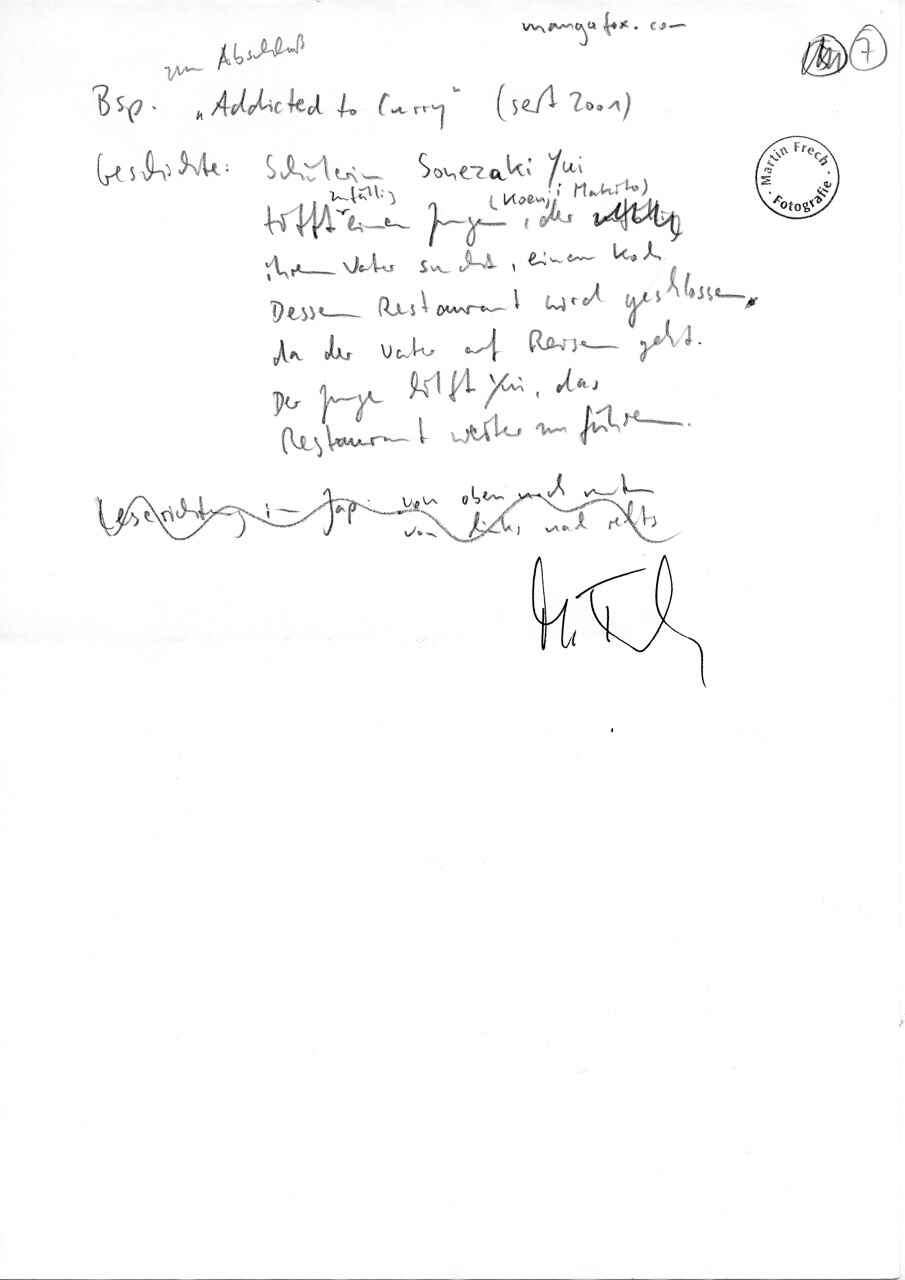 mangafox.com
7
zum Abschluß
Bsp. „Addicted to Curry" (seit 2001)
Martin Frech
· Fotografie ·
Geschichte: Schülerin Sonezaki Yui
zufällig (Koenji Makito)
trifft einen Jungen, der
ihren Vater sucht, einen Koch
Dessen Restaurant wird geschlossen,
da der Vater auf Reisen geht.
Der Junge hilft Yui, das
Restaurant weiter zu führen.
Leserichtung in Jap: von oben nach unten
von links nach rechts